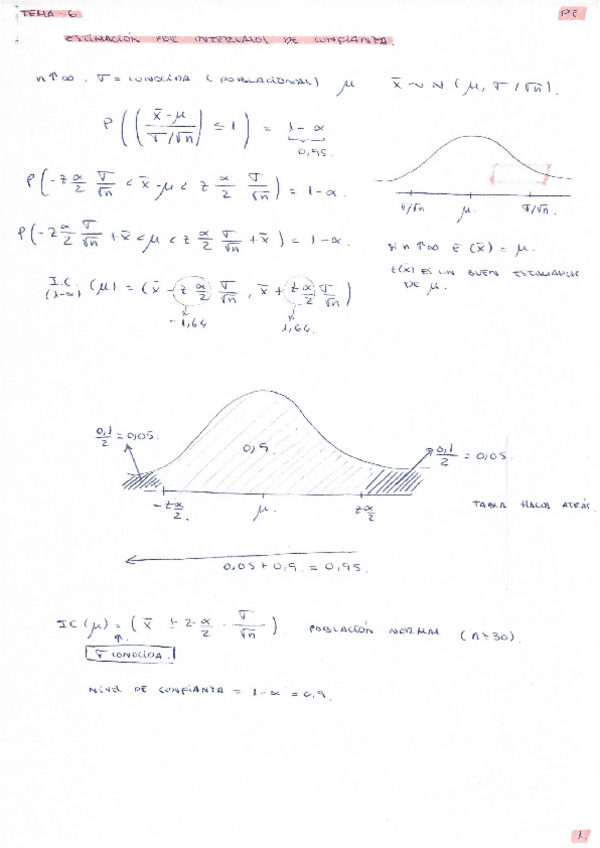 TEMA - 6 PE
ESTIMACIÓN POR INTERVALOS DE CONFIANZA.
n↑∞, σ = CONOCIDA (POBLACIONAL) μ x̄ ~ N (μ, σ/√n).
P((|x̄-μ / σ/√n| ≤ 1) = 1-α
0,95.
P(-z α/2 σ/√n < x̄-μ < z α/2 σ/√n) = 1-α.
σ/√n μ. σ/√n.
P(-z α/2 σ/√n + x̄ < μ < z α/2 σ/√n + x̄) = 1-α.
si n↑∞ E (x̄) = μ.
E(x̄) ES UN BUEN ESTIMADOR
DE μ.
I.C. (1-α) (μ) = (x̄ - z α/2 σ/√n , x̄ + z α/2 σ/√n)
-1,64 1,64.
0,1/2 = 0,05. 0,9. 0,1/2 = 0,05.
-z α/2. μ. z α/2
TABLA HACIA ATRÁS.
0,05 + 0,9. = 0,95.
IC (μ) = (x̄ ± z α/2 · σ/√n). POBLACIÓN NORMAL (n≥30).
σ CONOCIDA.
NIVEL DE CONFIANZA = 1-α = 0,9.
1.